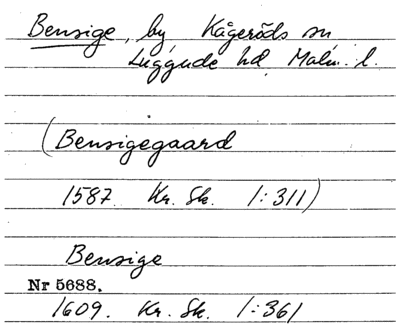 Bensige, by, Kågeröds sn
Luggude hd, Malm. l.
(Bensigegaard
1587. Kr. Sk. 1:311)
Bensige
Nr 5688.
1609. Kr. Sk. 1:361